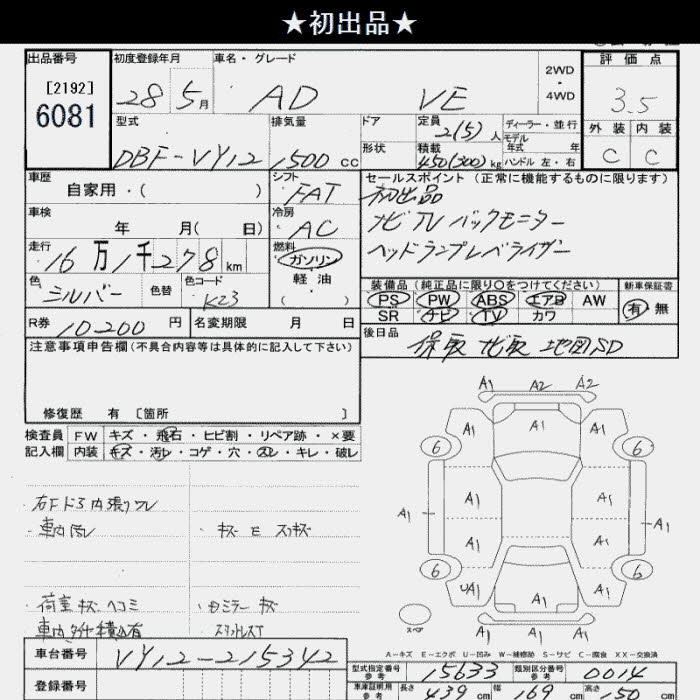 ★初出品★
出品番号 初度登録年月 車名・グレード 2WD・4WD 評価点
[2192]
6081
28 5月 AD VE 3.5
型式 排気量 ドア 定員 2(5)人 ディーラー・並行 外装 内装
モデル年式 年
DBF-VY12 1500cc 形状 積載 450(300)kg ハンドル 左・右 C C
車歴 シフト セールスポイント (正常に機能するものに限ります)
自家用・( ) FAT 初出品
車検 冷房 ナビTV バックモニター
年 月( 日) AC ヘッドランプレベライザー
走行 燃料
16万1千278km ガソリン
軽油
( )
色 色替 色コード 装備品(純正品に限り〇をつけてください) 新車保証書
シルバー K23 PS PW ABS エアB AW 有 無
SR ナビ TV カワ
R券 10200円 名変期限 月 日 後日品
保取 ナビ取 地図SD
注意事項申告欄(不具合内容等は具体的に記入して下さい)
修復歴 有 〔箇所 〕
検査員 FW キズ・飛石・ヒビ割・リペア跡・×要
記入欄 内装 キズ・汚レ・コゲ・穴・スレ・キレ・破レ
A1 A2 A2
A1
6 A1 A1 6
A1 A1 A1 A1
A1 A1
6 UA1 A1 A1 6
スペア A1 A1 A1
右Fドア内張りワレ
車内汚レ
荷室キズ ヘコミ
A-キズ E-エクボ U-凹み W-補修跡 S-サビ C-腐食 XX-交換済
車台番号 VY12-215342
型式指定番号 参考 15633 類別区分番号 参考 0014
登録番号
車庫証明用 参考 長さ 439cm 幅 169cm 高さ 150cm